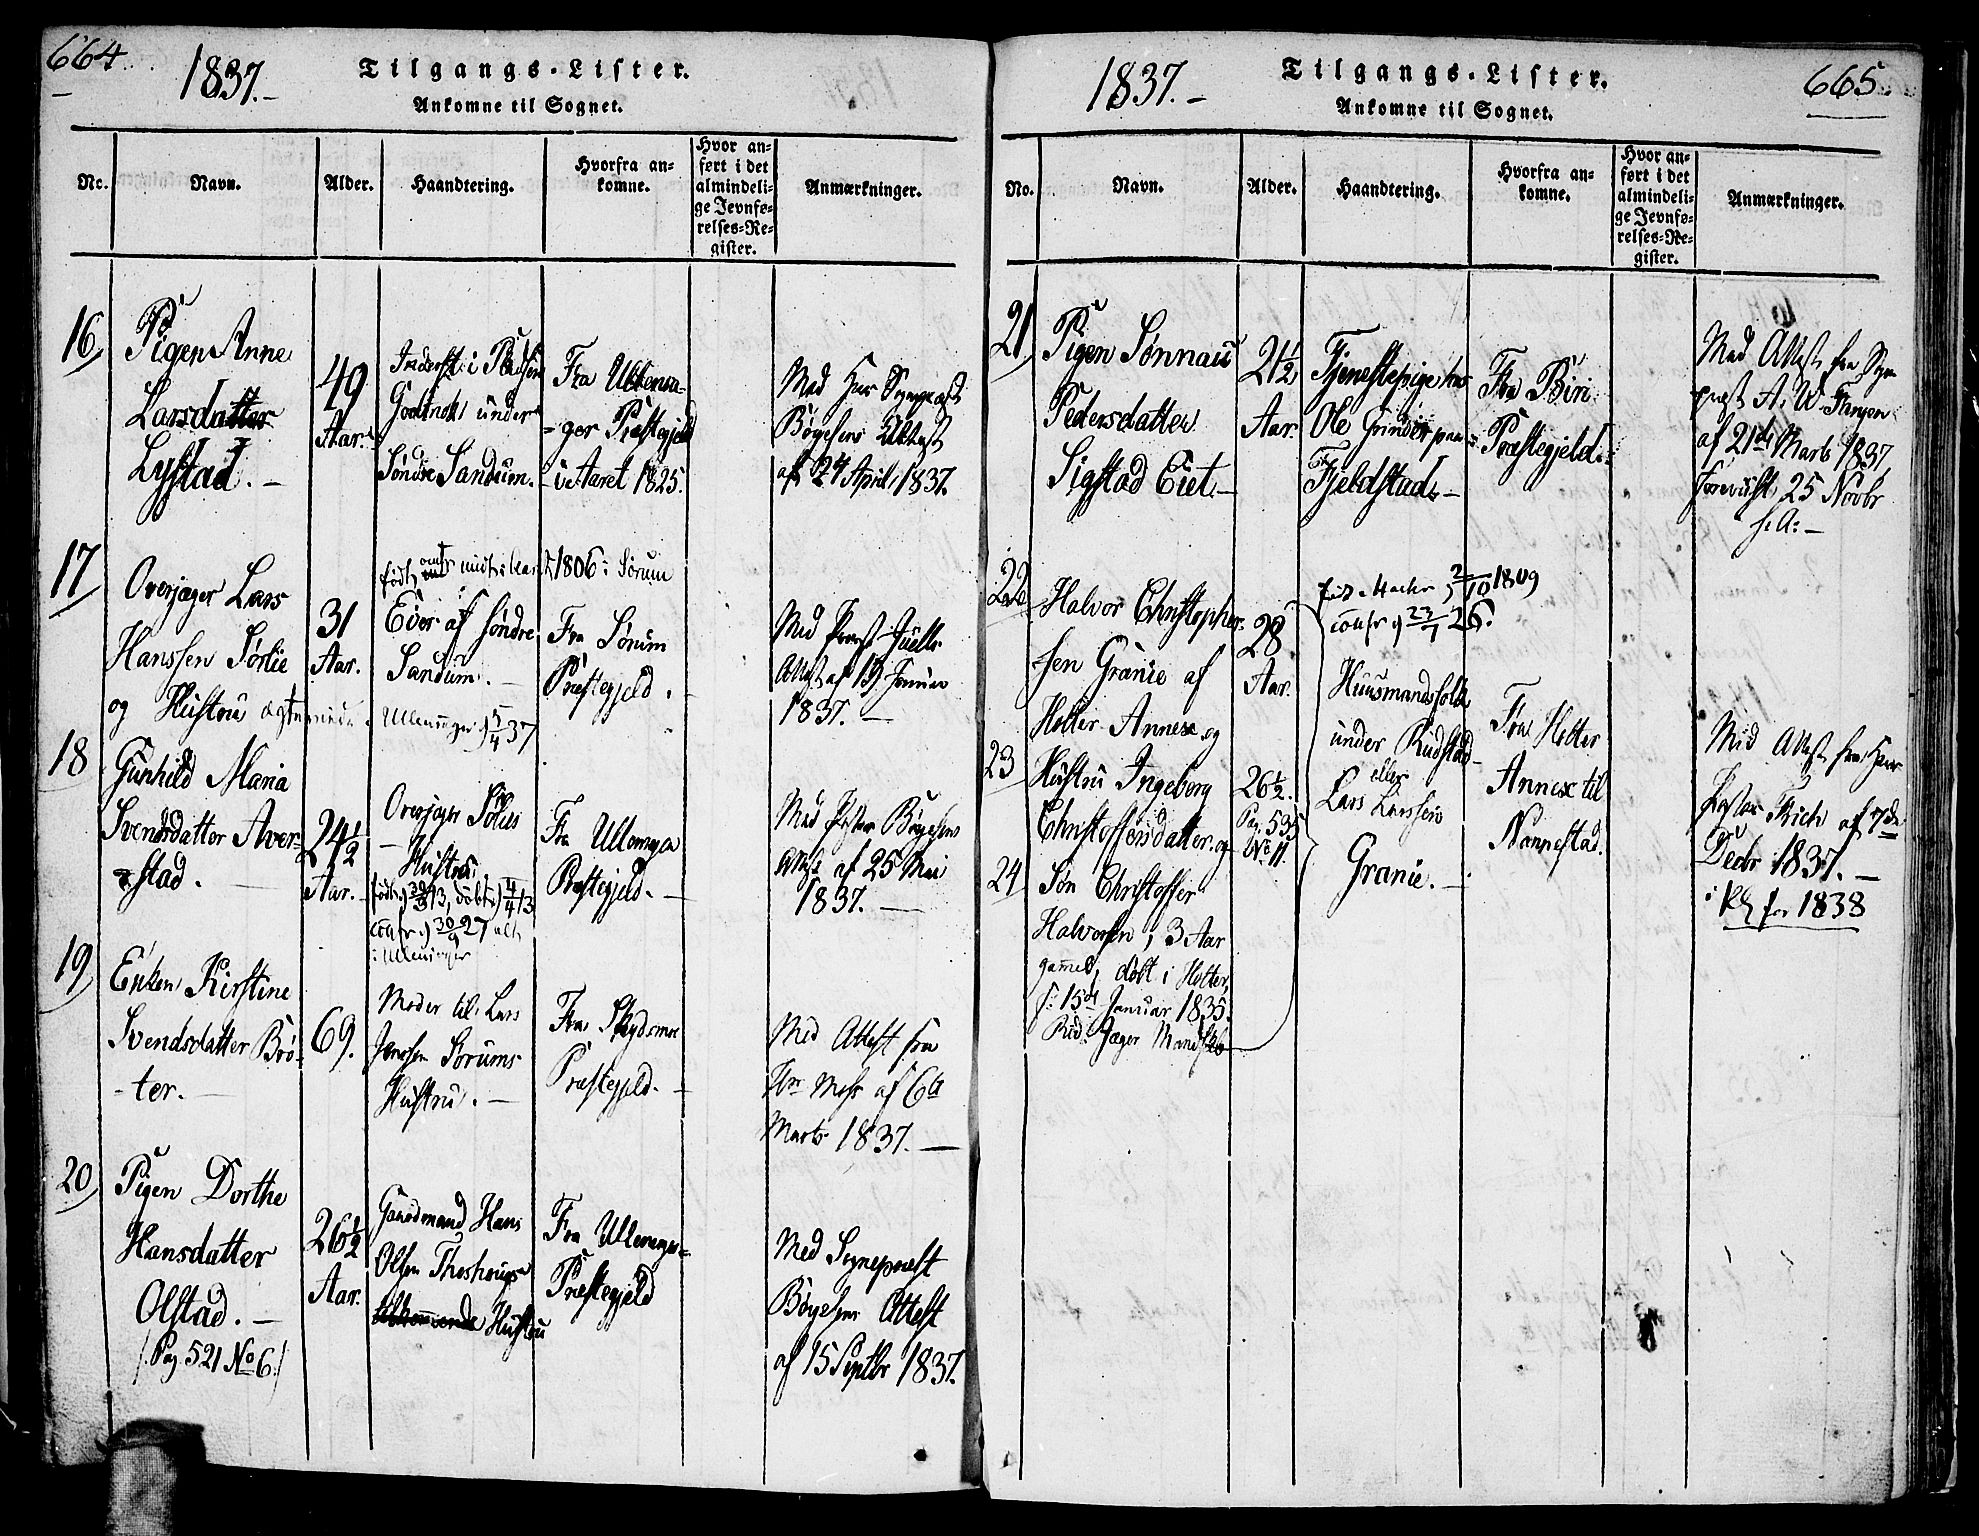 664.
1837.-
Tilgangs-Lister.
Ankomne til Sognet.
No.
Navn.
Alder.
Haandtering.
Hvorfra an-
komne.
Hvor an-
ført i det
almindeli-
ge Jevnfø-
relses-Re-
gister.
Anmærkninger.
16
Pigen Anne
Larsdatter
Lystad.-
49
Aar.
Inderst i Pladsen
under
Søndre Sandum.
Fra Ullensa-
-ger Præstegjeld
i Aaret 1825.
Med Hr Sognepræst
Bøgehs Attest
af 24 April 1837.
17
Overjæger Lars
Hanssen Sørlie
og Hustru
31
Aar.
født 1806 i Sørum
Eier af søndre
Sandum.-
Ullensager 5/4 37
Fra Sørum
Præstegjeld.
Med Præst Juells
Attest af 19 Januar
1837.-
18
Gunhild Maria
Svendsdatter Aver-
-stad.-
24½
Aar.
Overjæger Sølies
Hustru.
født 13, døbt 4/4 13
confr. 30/9 27 alt
i Ullensager
Fra Ullensager
Præstegjeld.-
Med Pastor Bøgehs
Attest af 25 Mai
1837.-
19
Enken Kirstine
Svendsdatter Brø-
-ter.-
69.
Moder til Lars
Jenssen Sorums
Hustru.-
Fra Skydsmoe
Præstegjeld.-
Med Attest fra
Hrr af 6te
Marts 1837.-
20
Pigen Dorthe
Hansdatter
Olstad.-
/: Pag. 521 No 6:/
26½
Aar.
Gaardmand Hans
Olsen
tilkommende Hustru
Fra Ullensager
Præstegjeld
Med Sognepræst
Bøgehs Attest
af 15 Septbr 1837.
1837.-
Tilgangs-Lister.
Ankomne til Sognet.
665.
No.
Navn.
Alder.
Haandtering.
Hvorfra an-
komne.
Hvor an-
ført i det
almindeli-
ge Jevnfø-
relses-Re-
gister.
Anmærkninger.
21
Pigen Sønnau
Pedersdatter
Sigstad Eiet.-
21½
Aar.
Tjenestepige hos
Ole Grinder paa
Fjeldstad.-
Fra Biri
Præstegjeld.
Med Attest fra Sogne
præst A. W.
af 21de Marts 1837,
forevist 25 Novbr
s. A:-
22
Halvor Christopher-
sen Granie af
Holter Annex og
28
Aar.
1809
confr. 23/7 26.
Huusmandsfolk
under Rudstad
eller
Lars Larssen
Granie.-
Fra Holter
Annex til
Nannestad.
Med Attest fra Herr
Pastor af 7de
Decbr 1837.-
i for 1838
23
Hustru Ingeborg
Christoffersdatter og
26½.
Pag. 535
No 11.
24
Søn Christoffer
Halvorsen, 3 Aar
gammel, døbt i Holter,
f: 15de Januar 1835.
Rid. Jæger